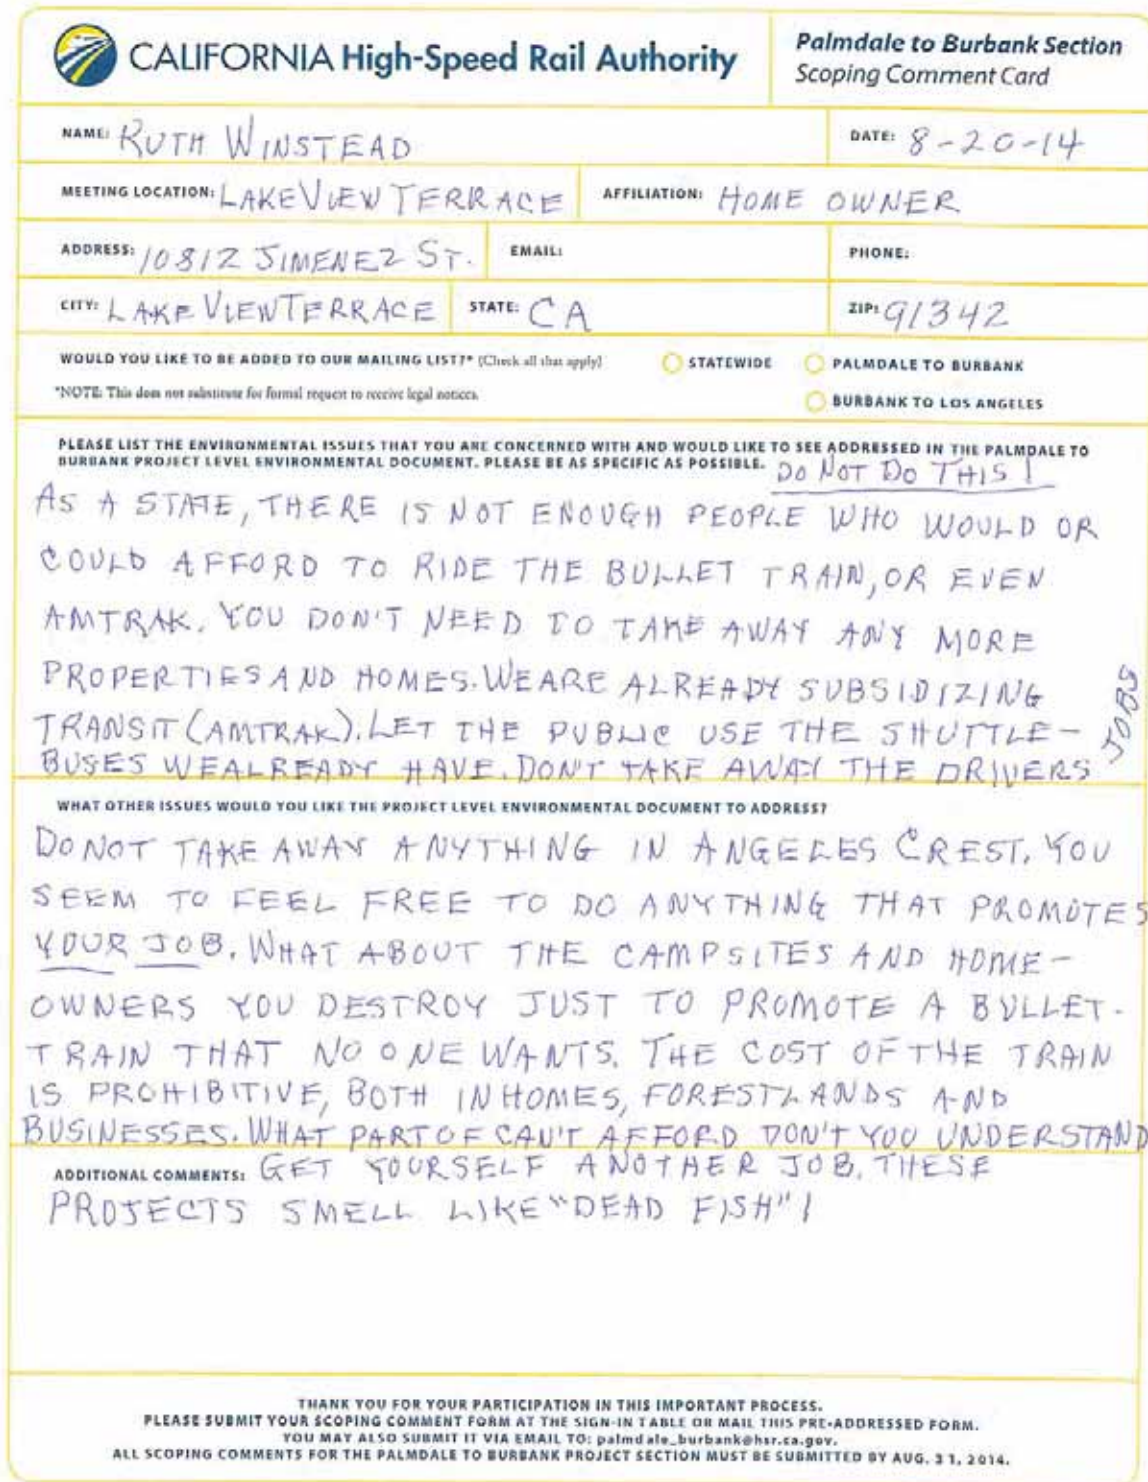 CALIFORNIA High-Speed Rail Authority
Palmdale to Burbank Section
Scoping Comment Card
NAME: RUTH WINSTEAD
DATE: 8-20-14
MEETING LOCATION: LAKEVIEW TERRACE
AFFILIATION: HOME OWNER
ADDRESS: 10812 JIMENEZ ST.
EMAIL:
PHONE:
CITY: LAKE VIEW TERRACE
STATE: CA
ZIP: 91342
WOULD YOU LIKE TO BE ADDED TO OUR MAILING LIST?* (Check all that apply)
STATEWIDE
PALMDALE TO BURBANK
*NOTE: This does not substitute for formal request to receive legal notices.
BURBANK TO LOS ANGELES
PLEASE LIST THE ENVIRONMENTAL ISSUES THAT YOU ARE CONCERNED WITH AND WOULD LIKE TO SEE ADDRESSED IN THE PALMDALE TO
BURBANK PROJECT LEVEL ENVIRONMENTAL DOCUMENT. PLEASE BE AS SPECIFIC AS POSSIBLE.
DO NOT DO THIS!
AS A STATE, THERE IS NOT ENOUGH PEOPLE WHO WOULD OR
COULD AFFORD TO RIDE THE BULLET TRAIN, OR EVEN
AMTRAK. YOU DON'T NEED TO TAKE AWAY ANY MORE
PROPERTIES AND HOMES. WE ARE ALREADY SUBSIDIZING
TRANSIT (AMTRAK). LET THE PUBLIC USE THE SHUTTLE-
BUSES WE ALREADY HAVE. DON'T TAKE AWAY THE DRIVERS
JOBS
WHAT OTHER ISSUES WOULD YOU LIKE THE PROJECT LEVEL ENVIRONMENTAL DOCUMENT TO ADDRESS?
DO NOT TAKE AWAY ANYTHING IN ANGELES CREST. YOU
SEEM TO FEEL FREE TO DO ANYTHING THAT PROMOTES
YOUR JOB. WHAT ABOUT THE CAMPSITES AND HOME-
OWNERS YOU DESTROY JUST TO PROMOTE A BULLET-
TRAIN THAT NO ONE WANTS. THE COST OF THE TRAIN
IS PROHIBITIVE, BOTH IN HOMES, FORESTLANDS AND
BUSINESSES. WHAT PART OF CAN'T AFFORD DON'T YOU UNDERSTAND
ADDITIONAL COMMENTS: GET YOURSELF ANOTHER JOB. THESE
PROJECTS SMELL LIKE "DEAD FISH"!
THANK YOU FOR YOUR PARTICIPATION IN THIS IMPORTANT PROCESS.
PLEASE SUBMIT YOUR SCOPING COMMENT FORM AT THE SIGN-IN TABLE OR MAIL THIS PRE-ADDRESSED FORM.
YOU MAY ALSO SUBMIT IT VIA EMAIL TO: palmdale_burbank@hsr.ca.gov.
ALL SCOPING COMMENTS FOR THE PALMDALE TO BURBANK PROJECT SECTION MUST BE SUBMITTED BY AUG. 31, 2014.